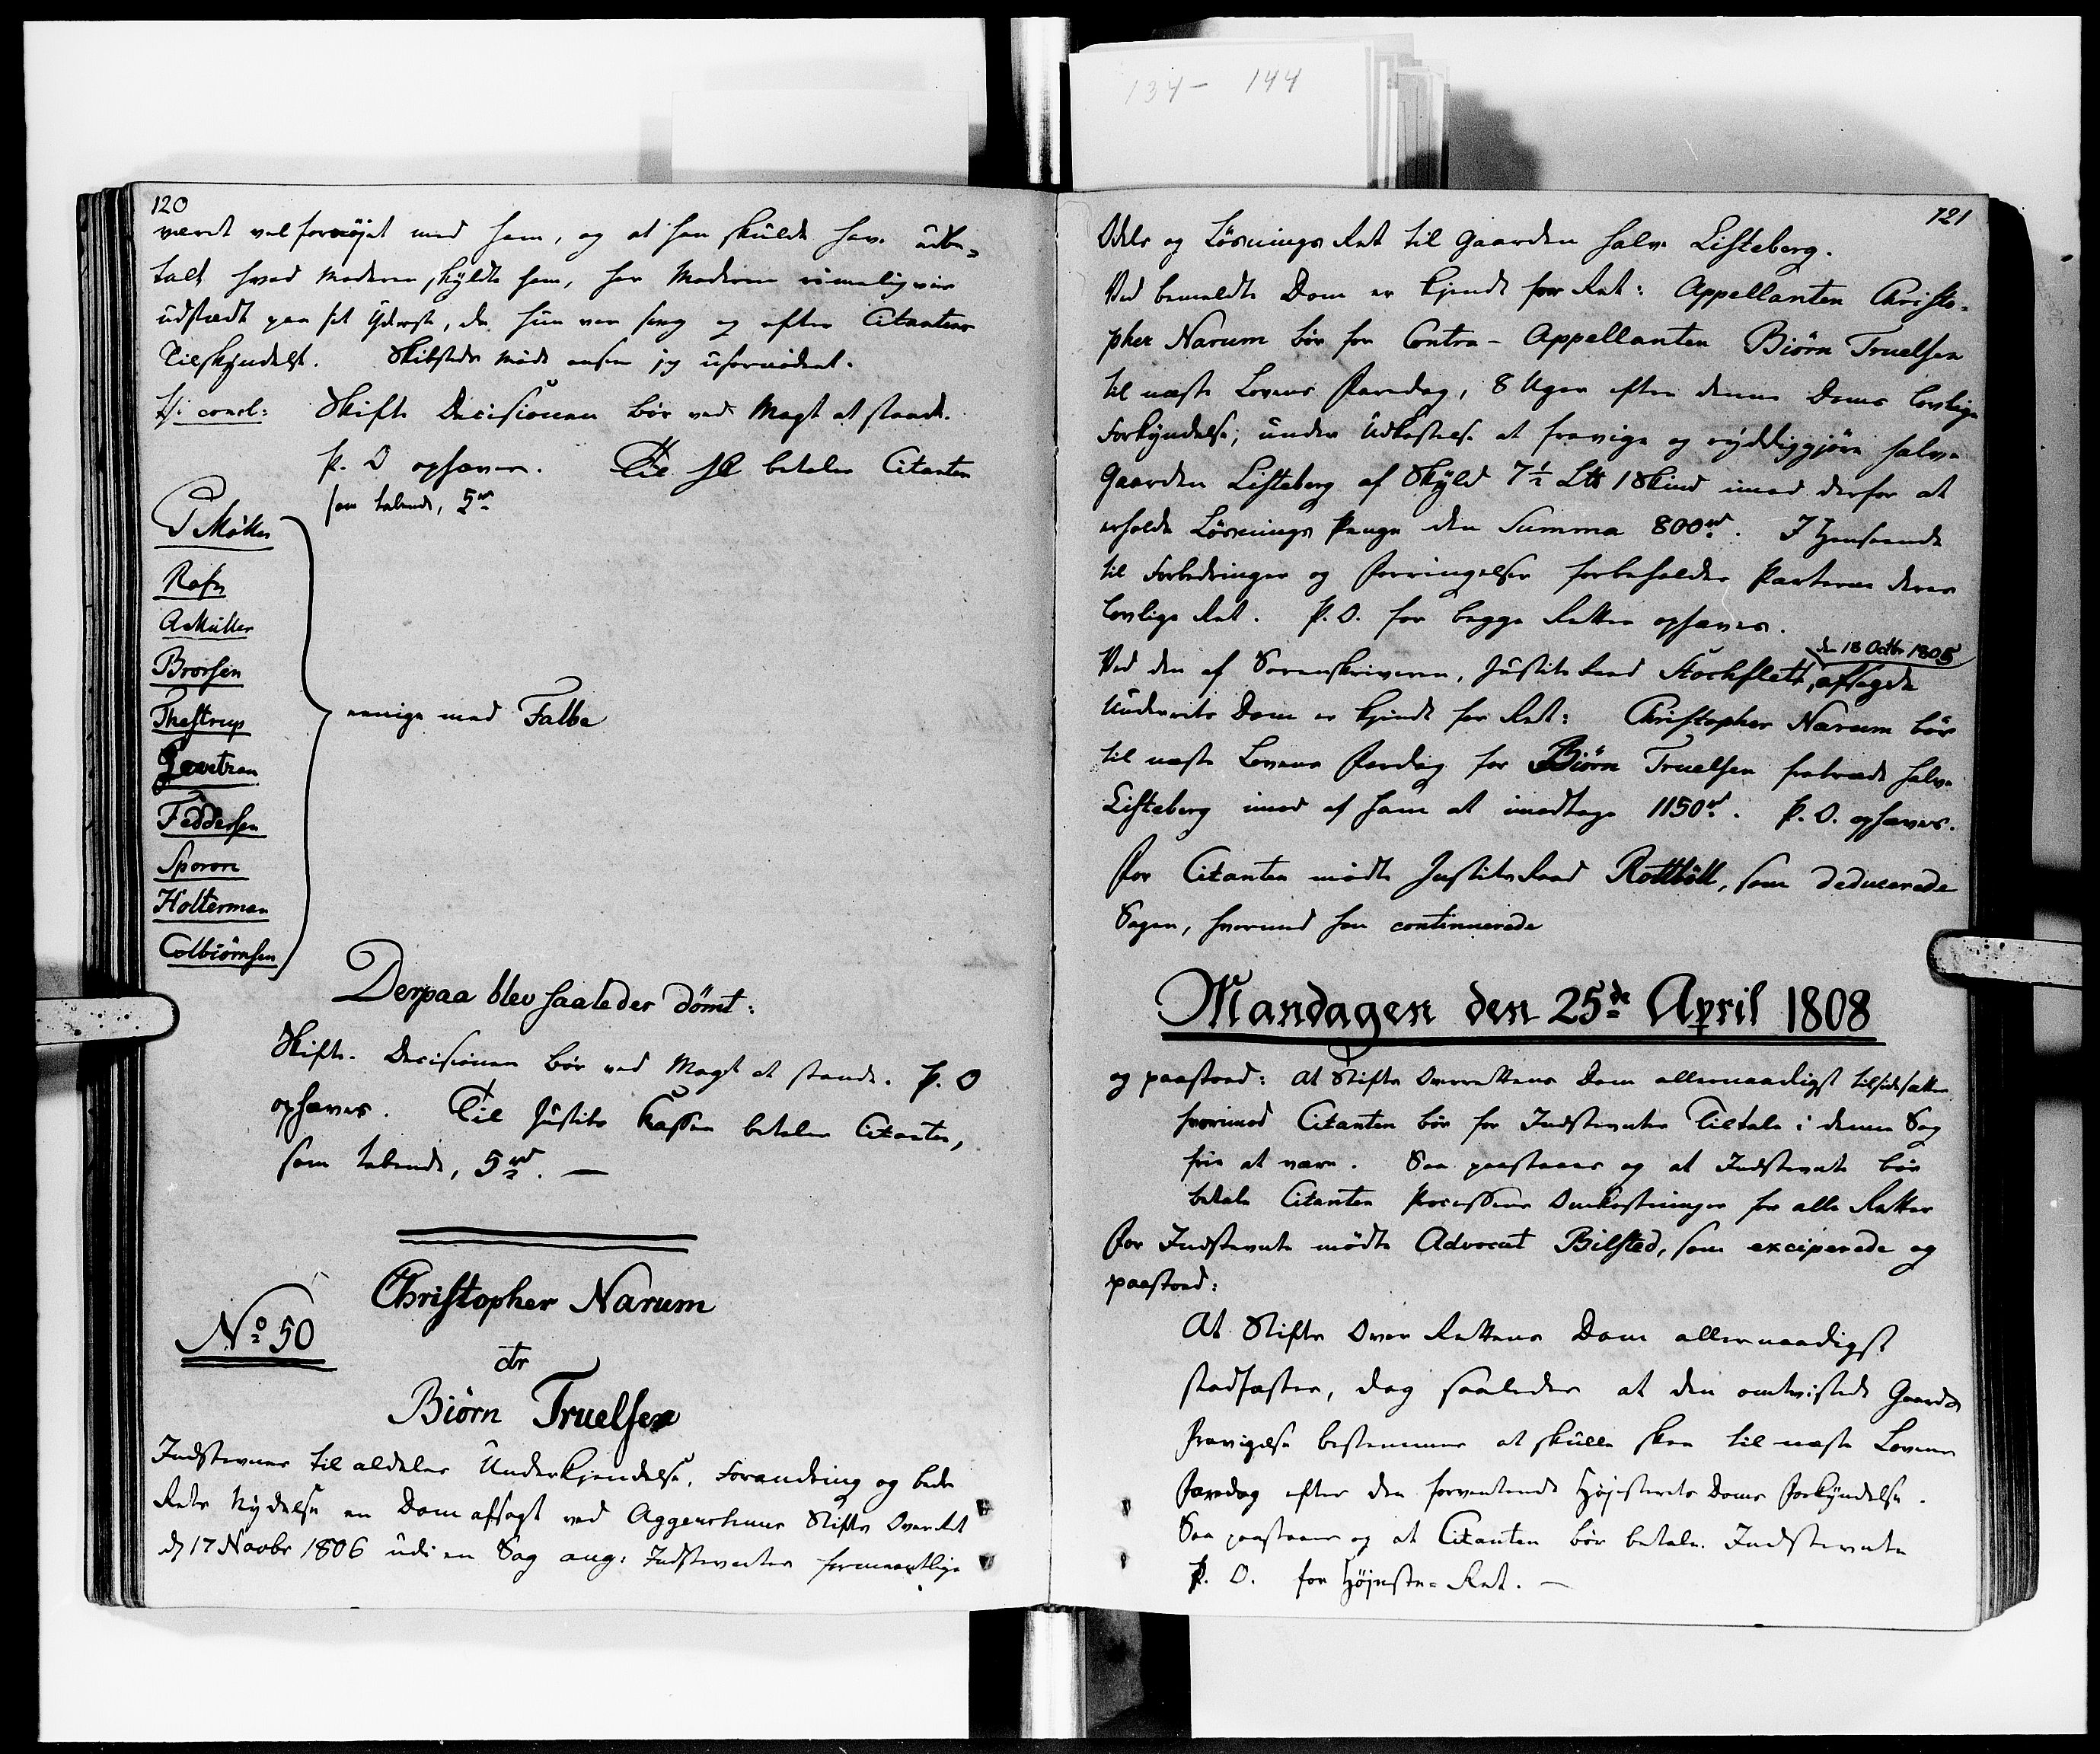 134 - 144
120
været vel fornøjet med ham, og at han skulde have udbe-
talt hvad Moderen skyldte ham, har Moderen rimeligviis
udstædt paa sit Yderste, da hun var svag og efter Citantens
Tilskyndelse. Skibsteds Møde anseer jeg ufornødent.
Thi concl: Skifte Decisionen bør ved Magt at stande.
P. O ophæves. Til JC betaler Citanten
som tabende, 5 rd
P Møller
Rafn
A Müller
Brorsen
Thestrup
Gevetran
Feddersen
Sporon
Holterman
Colbiørnsen
eenige med Falbe
Derpaa blev saaledes dømt:
Skifte-Decisionen bør ved Magt at stande. P. O
ophæves. Til Justits Kassen betaler Citanten,
som tabende, 5 rd. —
No 50
Christopher Narum
ctr
Biørn Truelsen
Indstevner til aldeles Underkjendelse, Forandring og bedre
Rets Nydelse en Dom afsagt ved Aggershuus Stifts OverRet
d 17 Novbr 1806 udi en Sag ang: Indstevntes formeentlige
121
Odels og Løsnings Ret til Gaarden halve Listeberg.
Ved bemeldte Dom er kjendt for Ret: Appellanten Christo-
pher Narum bør for Contra-Appellanten Biørn Truelsen
til næste Lovens Faredag, 8 Uger efter denne Doms lovlige
Forkyndelse, under Udkastelse at fravige og ryddiggjøre halve
Gaarden Listeberg af Skyld 7½ Lt 1 Skind imod derfor at
erholde Løsnings Penge den Summa 800 rd. I Henseende
til Forbedringer og Forringelser forbeholdes Parterne deres
lovlige Ret. P. O. for begge Retter ophæves.
den 18 Octbr 1805
Ved den af Sorenskriveren, Justits Raad Stockfleth, afsagde
Underrets Dom er kjendt for Ret: Christopher Narum bør
til næste Lovens Faredag for Biørn Truelsen fratræde halve
Listeberg imod af ham at imodtage 1150 rd. P. O. ophæves.
For Citanten mødte Justits Raad Rottbøll, som deducerede
Sagen, hvormed han continuerede
Mandagen den 25de April 1808
og paastod: At Stifts Overrettens Dom allernaadigst tilsidesættes
hvorimod Citanten bør for Indstevntes Tiltale i denne Sag
frie at være. Saa paastaaes og at Indstevnte bør
betale Citanten Processens Omkostninger for alle Retter
For Indstevnte mødte Advocat Bilsted, som exciperede og
paastod:
At Stifts Over Rettens Dom allernaadigst
stadfæstes, dog saaledes at den omtvistede Gaards
Fravigelse bestemmes at skulle skee til næste Lovens
Faredag efter den forventende Højesterets Doms Forkyndelse.
Saa paastaaes og at Citanten bør betale Indstevnte
P. O. for Højeste-Ret. —